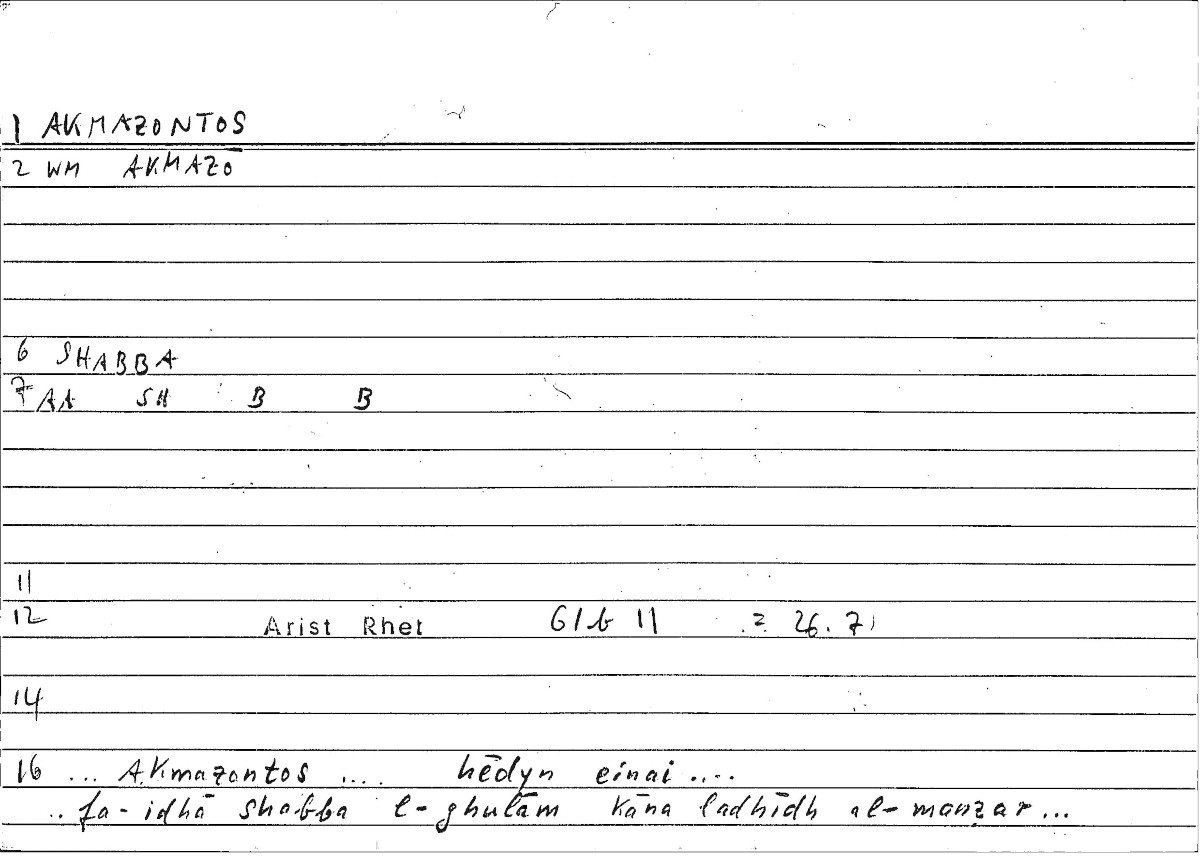 1 AKMAZONTOS
2 WM AKMAZŌ
6 SHABBA
7 AA SH B B
11
12 Arist Rhet 61b 11 = 26.7)
14
16 ... AKmazontos .... hēdyn einai ....
.. fa-idhā shabba l-ghulām kāna ladhīdh al-manẓar ...